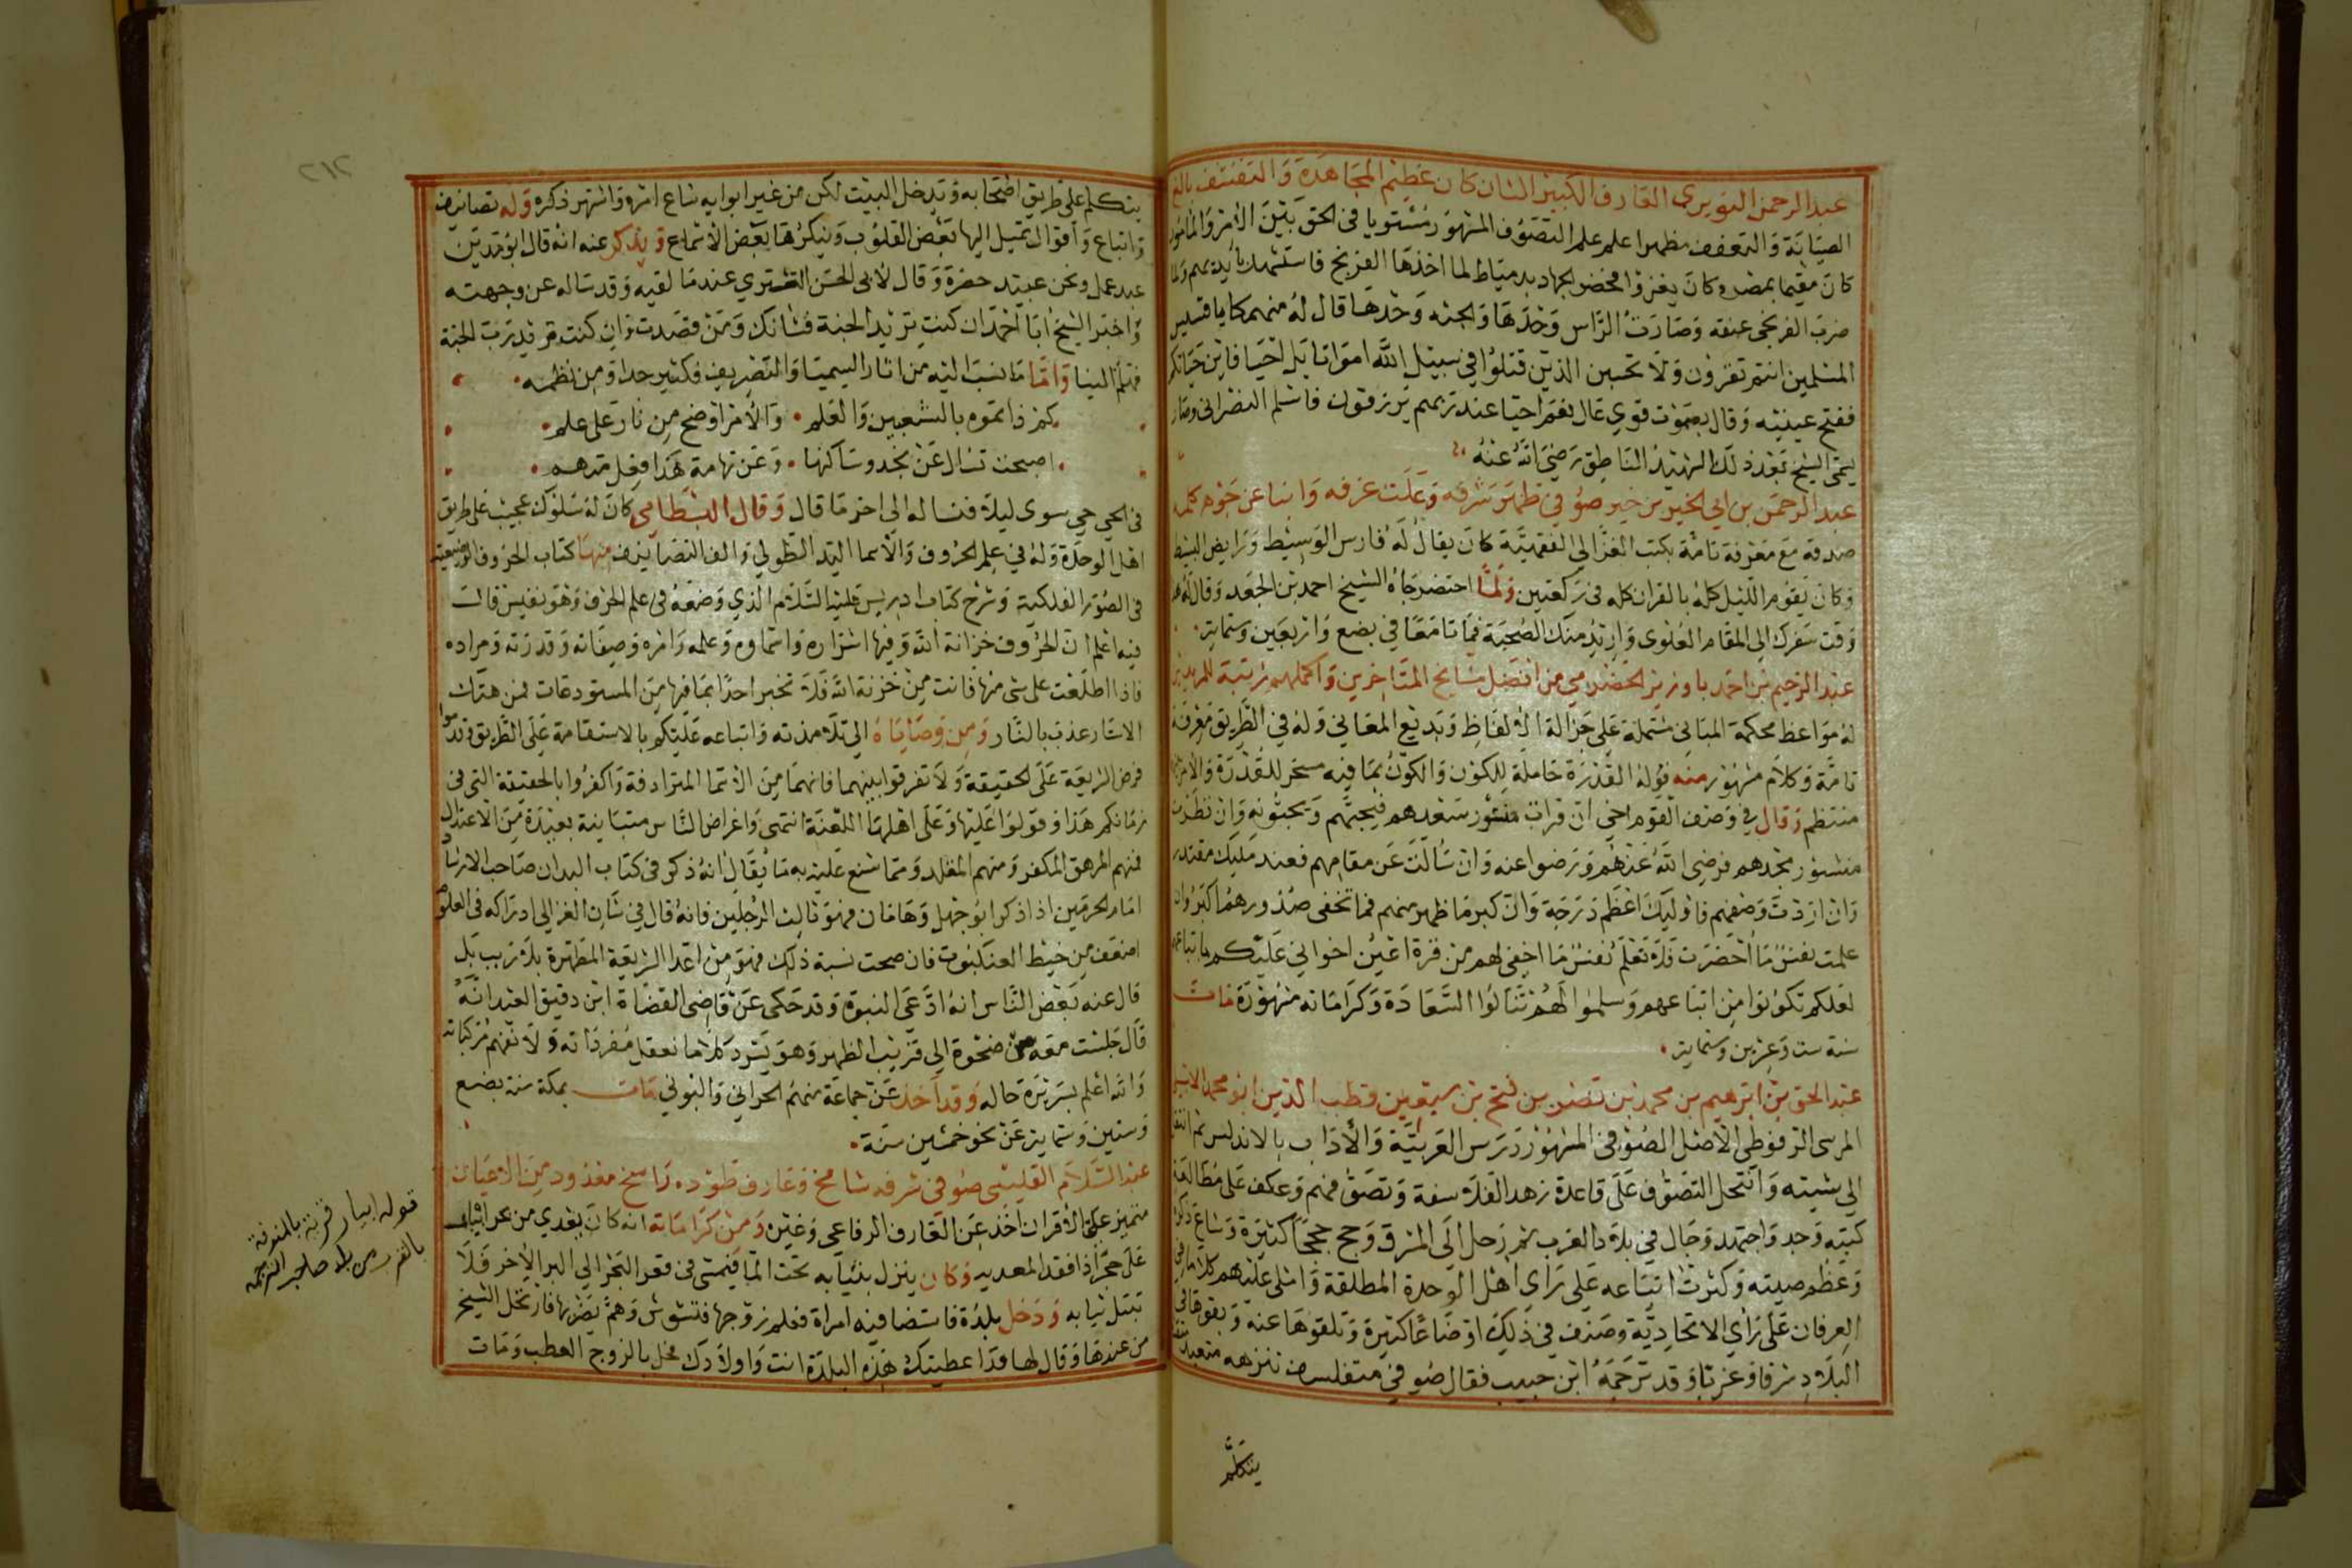 عبد الرحمن النويري العارف الكبير الشان كان عظيم المجاهدة والتقشف بالغ
الصيانة والتعفف مظهرا علم علم التصوف المشهور مستويا في الحق بين الامر والمامور
كان مقيما بمصر وكان يغزوا فحضر الجهاد بدمياط لما اخذها الفرنج فاستشهد بايديهم ولما
ضرب الفرنجي عنقه وصارت الراس وحدها والجثه وحدها قال له منهم كا يا قسيس
المسلمين انتم تقرون ولا تحسبن الذين قتلوا في سبيل الله امواتا بل احيا فاين حياتكم
ففتح عينيه وقال بصوت قوي عال نعم احيا عند ربهم يرزقون فاسلم النصراني وصار
يسمى الشيخ بعد ذلك الشهيد الناطق رضي الله عنه
عبد الرحمن بن ابي الخير بن خير صوفي ظهر شرفه وعلت غرفه وانبا عن جوهر كلمه
صدقه مع معرفة تامة بكتب الغزالي الفقهية كان يقال له فارس الوسيط ورايض البسيط
وكان يقوم الليل كله بالقران كله في ركعتين ولما احتضر جاه الشيخ احمد بن الجعد وقال له هذا
وقت سفرك الى المقام العلوى واريد منك الصحبة فماتا معا في بضع واربعين وستماية
عبد الرحيم بن احمد باوزير الحضرمي من افضل مشايخ المتاخرين واكملهم تربية للمريدين
له مواعظ محكمة المباني مشتملة على جزالة الالفاظ وبديع المعاني وله في الطريق معرفة
تامة وكلام مشهور منه قوله القدرة حاملة للكون والكون بما فيه مسخر للقدرة والامر
منتظم وقال في وصف القوم اخي ان قرات منشور سعدهم فيحبهم ويحبونه وان نظرت
منشور مجدهم فرضي الله عنهم ورضوا عنه وان سالت عن مقامهم فعند مليك مقتدر
وان اردت وصفهم فاوليك اعظم درجة وان كبر ما ظهر منهم فما تخفى صدورهم اكبر وان
علمت نفس ما احضرت فلا تعلم نفس ما اخفي لهم من قرة اعين اخواني عليكم باتباعهم
لعلكم تكونوا من اتباعهم وسلموا لهم تنالوا السعادة وكراماته مشهورة مات
سنة ست وعشرين وستماية
عبد الحق بن ابراهيم بن محمد بن نصر بن فتح بن سبعين قطب الدين ابو محمد الاشبيلي
المرسى الرقوطي الاصل الصوفي المشهور درس العربية والاداب بالاندلس ثم انتقل
الى سبته وانتحل التصوف على قاعدة زهد الفلاسفة وتصوفهم وعكف على مطالعة
كتبه وجد واجتهد وجال في بلاد المغرب ثم رحل الى المشرق وحج حججا كثيرة وشاع ذكره
وعظم صيته وكثرت اتباعه على راي اهل الوحدة المطلقة واملى عليهم كلاما في
العرفان على راي الاتحادية وصنف في ذلك اوضاعا كثيرة وتلقوها عنه وبثوها في
البلاد شرقا وغربا وقد ترجمه ابن حبيب فقال صوفي متفلسف تزهد متعبد متقشف
يتكلم
٢١٢
يتكلم على طريق اصحابه ويدخل البيت لكن من غير ابوابه شاع امره واشتهر ذكره وله تصانيف
واتباع واقوال تميل اليها بعض القلوب وينكرها بعض الاسماع ويذكر عنه انه قال ابو مدين
عبد عمل ونحن عبيد حضرة وقال لابي الحسن الششتري عندما لقيه وقد ساله عن وجهته
واخبر الشيخ ابا احمد ان كنت تريد الجنة فشانك ومن قصدت وان كنت تريد رب الجنة
فهلم الينا واما ما نسب اليه من اثار السيميا والتصريف فكثير جدا ومن نظمه
كم ذا تموه بالشعبين والعلم والامر اوضح من نار على علم
اصبحت تسال عن نجد وساكنها وعن تهامة هذا فعل متهم
في الحي حي سوى ليلى فتساله الى اخر ما قال وقال البسطامي كان له سلوك عجيب على طريق
اهل الوحدة وله في علم الحروف والاسما اليد الطولي والف التصانيف منها كتاب الحروف الوضعية
في الصور الفلكية وشرح كتاب ادريس عليه السلام الذي وضعه في علم الحرف وهو نفيس قال
فيه اعلم ان الحروف خزانة الله وفيها اسراره واسماوه وعلمه وامره وصفاته وقدرته ومراده
فاذا اطلعت على شي منها فانت من خزنة الله فلا تخبر احدا بما فيها من المستودعات فمن هتك
الاستار عذب بالنار ومن وصاياه الى تلامذته واتباعه عليكم بالاستقامة على الطريق وقدموا
فرض الشريعة على الحقيقة ولا تفرقوا بينهما فانهما من الاسما المترادفة واكفروا بالحقيقة التي في
زمانكم هذا وقولوا عليها وعلى اهلها اللعنة انتهى واغراض الناس متباينة بعيدة من الاعتدال
فمنهم المرهق المكفر ومنهم المقلد ومما شنع عليه به ما يقال انه ذكر في كتاب البدان صاحب الارشاد
امام الحرمين اذا ذكر ابو جهل وهامان فهو ثالث الرجلين فانه قال في شان الغزالي ادراكه في العلوم
اضعف من خيط العنكبوت فان صحت نسبة ذلك فهو من اعدا الشريعة المطهرة بلا ريب بل
قال عنه بعض الناس انه ادعى النبوة وقد حكى عن قاضي القضاة ابن دقيق العيد انه
قال جلست معه من ضحوة الى قريب الظهر وهو يسرد كلاما نعقل مفرداته ولا نفهم مركباته
والله اعلم بسريرة حاله وقد اخذ عن جماعة منهم الحراني والبوني مات بمكة سنة بضع
وستين وستماية عن نحو خمسين سنة
عبد السلام القليبي صوفي شرفه شامخ وعارف طوده راسخ معدود من الاعيان
متميز على الاقران اخذ عن العارف الرفاعي وغيره ومن كراماته انه كان يعدي من بحر ابيار
على حجر اذا فقد المعديه وكان ينزل بثيابه تحت الما فيمشي في قعر البحر الى البر الاخر فلا
تبتل ثيابه ودخل بلدة فاستضافه امراة فعلم زوجها فتشوش وهم بضربها فارتحل الشيخ
من عندها وقال لها قد اعطيتك هذه البلدة انت واولادك فحل بالزوج العطب ومات
قوله ابيار قرية بالمنوفية
بالقرب من بلد صاحب الترجمة